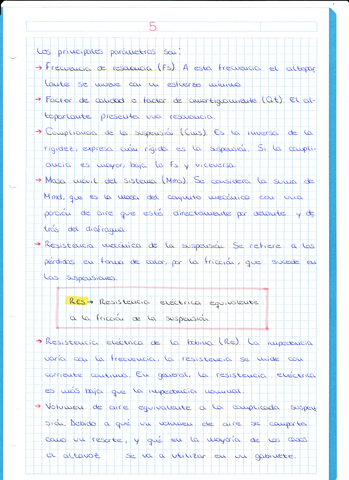 5
Los principales parámetros son:
→ Frecuencia de resonancia (Fs). A esta frecuencia el altopar
lante se mueve con un esfuerzo mínimo
→ Factor de calidad o factor de amortiguamiento (Qt). El al-
toparlante presenta una resonancia.
→ Compliancia de la suspensión (Cms). Es la inversa de la
rigidez, expresa cuán rígido es la suspensión. Si la compli-
ancia es mayor, baja la Fs y viceversa.
→ Masa móvil del sistema (Mms). Se considera la suma de
Mmd, que es la masa del conjunto mecánico con una
porción de aire que está directamente por delante y de
trás del diafragma.
→ Resistencia mecánica de la suspensión. Se refiere a las
pérdidas en forma de calor, por la fricción, que sucede en
las suspensiones.
RES → Resistencia eléctrica equivalente
a la fricción de la suspensión
→ Resistencia eléctrica de la bobina (Re). La impedancia
varía con la frecuencia, la resistencia se mide con
corriente continua. En general, la resistencia eléctrica
es más baja que la impedancia nominal.
→ Volumen de aire equivalente a la complicada suspen
sión. Debido a qué un volumen de aire se comporta
como un resorte, y qué en la mayoría de los casos
el altavoz se va a utilizar en un gabinete.